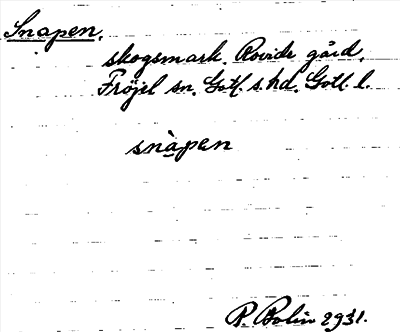 Snapen.
skogsmark. Rovide gård,
Fröjel sn. Gotl. s. hd. Gotl. l.
snàpen
P. Bolin 2931.